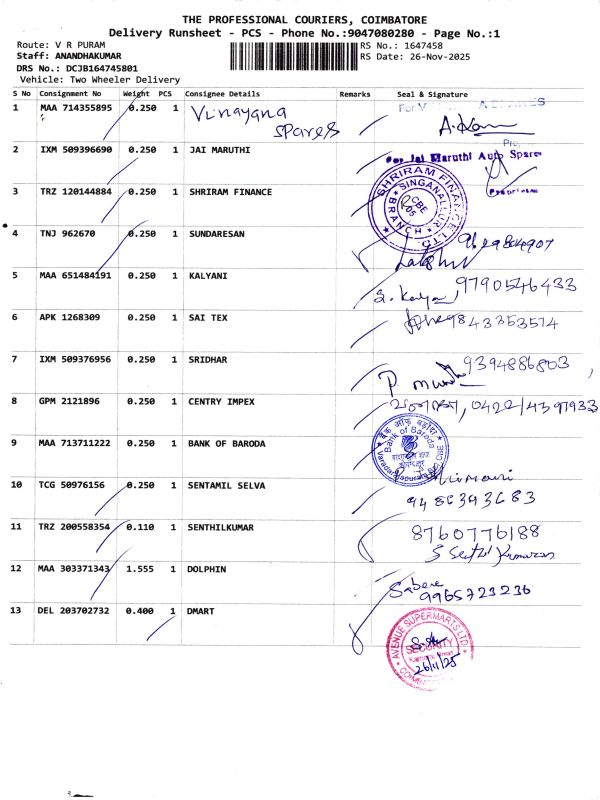 THE PROFESSIONAL COURIERS, COIMBATORE
Delivery Runsheet - PCS - Phone No.:9047080280 - Page No.:1
Route: V R PURAM RS No.: 1647458
Staff: ANANDHAKUMAR RS Date: 26-Nov-2025
DRS No.: DCJB164745801
Vehicle: Two Wheeler Delivery
S No Consignment No Weight PCS Consignee Details Remarks Seal & Signature
1 MAA 714355895 0.250 1 Vinayana Spares
2 IXM 509396690 0.250 1 JAI MARUTHI For Jai Maruthi Auto Spares
3 TRZ 120144884 0.250 1 SHRIRAM FINANCE SHRIRAM FINANCE LTD. SINGANALLUR BRANCH CBE
4 TNJ 962670 0.250 1 SUNDARESAN
5 MAA 651484191 0.250 1 KALYANI 9790546433
6 APK 1268309 0.250 1 SAI TEX 9843353574
7 IXM 509376956 0.250 1 SRIDHAR 9394886803
8 GPM 2121896 0.250 1 CENTRY IMPEX
9 MAA 713711222 0.250 1 BANK OF BARODA बैंक ऑफ़ बड़ौदा Bank of Baroda
10 TCG 50976156 0.250 1 SENTAMIL SELVA
11 TRZ 200558354 0.110 1 SENTHILKUMAR 8760776188
12 MAA 303371343 1.555 1 DOLPHIN 9965723236
13 DEL 203702732 0.400 1 DMART AVENUE SUPERMARTS LTD. SECURITY
26/11/25